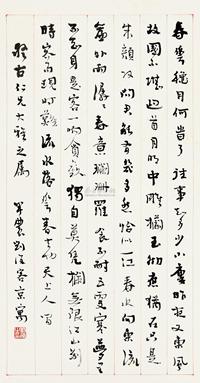 春花穐月何時了往事知多少小樓昨夜又東風
故國不堪迴首月明中雕欄玉砌應猶在只是
朱顏改問君能有幾多愁恰似一江春水向東流
簾外雨潺潺春意闌珊羅衾不耐五更寒夢里
不知身是客一晌貪歡獨自莫憑欄無限江山別
時容易見時難流水落花春去也天上人間
古仁兄大雅之屬
半農劉復客京寓